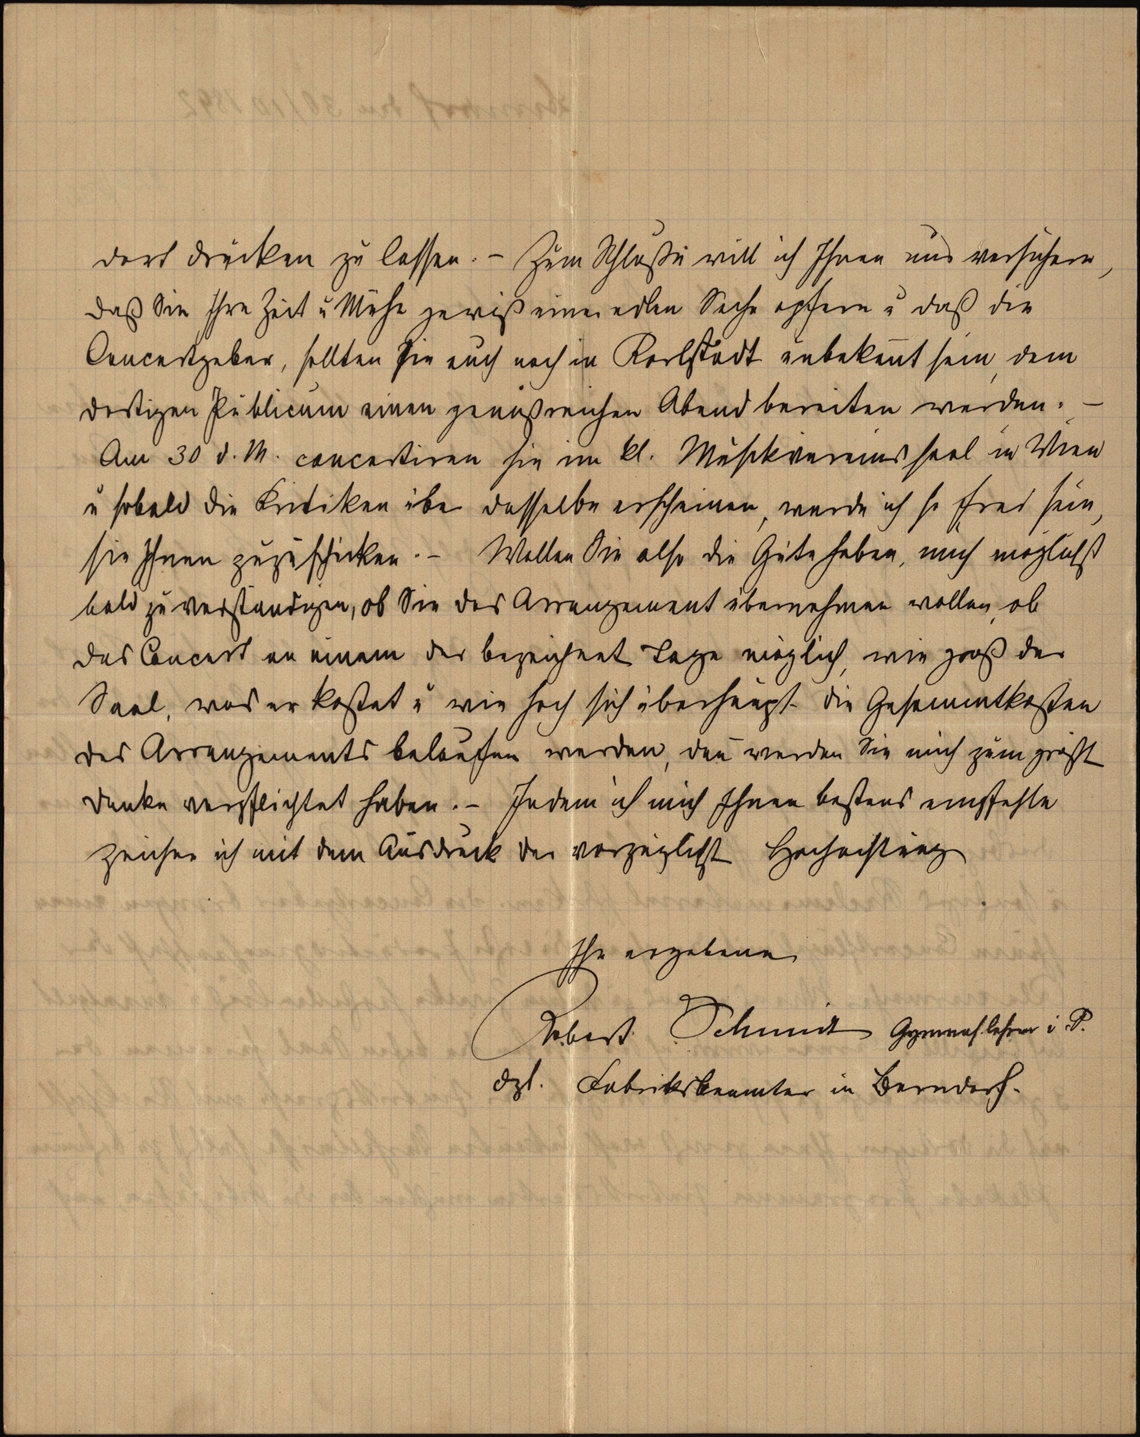 dort drucken zu lassen. – Zum Schluße will ich Ihnen nur versichern,
daß Sie Ihre Zeit u Mühe gewiß einer edlen Sache opfern u daß die
Concertgeber, sollten sie auch noch in Karlstadt unbekannt sein, dem
dortigen Publicum einen genußreichen Abend bereiten werden. –
Am 30 d. M. concertiren sie im kl. Musikvereinssaal in Wien
u sobald die Kritiken über dasselbe erscheinen, werde ich so frei sein,
sie Ihnen zuzuschicken. – Wollen Sie also die Güte haben, mich möglichst
bald zu verständigen, ob Sie das Arrangement übernehmen wollen, ob
das Concert an einem der bezeichnet Tage möglich, wie groß der
Saal, was er kostet u wie hoch sich überhaupt die Gesammtkosten
des Arrangements belaufen werden, dan̄ werden Sie mich zum größt
Danke verpflichtet haben. – Indem ich mich Ihnen bestens empfehle
zeichne ich mit dem Ausdruck der vorzüglichst Hochachtung
Ihr ergebener
Robert Schmidt Gymnasllehrer i P.
dzt. Fabriksbeamter in Berndorf.